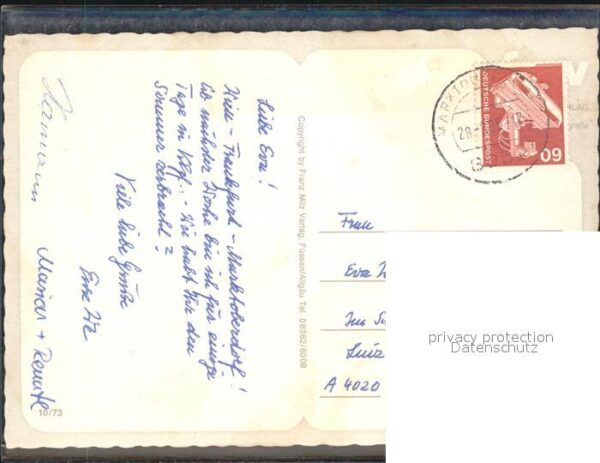 Liebe Eva!
Kiel - Frankfurt - Marktoberdorf!
Ab nächster Woche bin ich für einige
Tage in Kpf. - Wie habt Ihr den
Sommer verbracht?
Viele liebe Grüße
Eure
Hermann
Marion + Renate
10/73
Copyright by Franz Milz Verlag, Füssen/Allgäu Tel. 08362/6008
DEUTSCHE BUNDESPOST
60
MARKTO
28.
Frau
Eva
Im
Linz
A 4020
privacy protection
Datenschutz